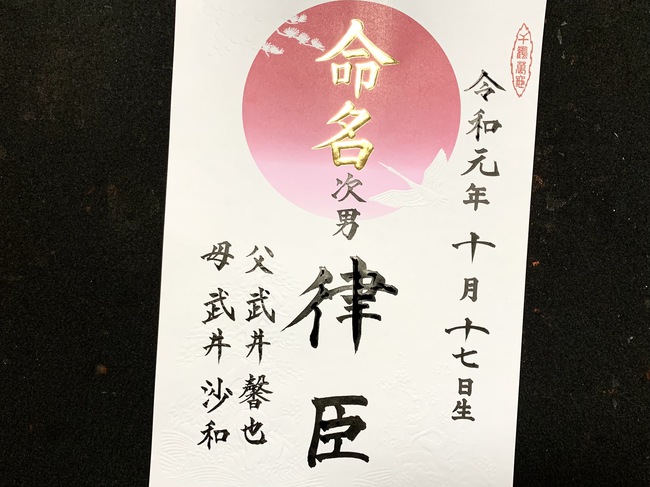 千穐萬歳
令和元年 十月 十七日生
命名
次男
律臣
父 武井 馨也
母 武井 沙和